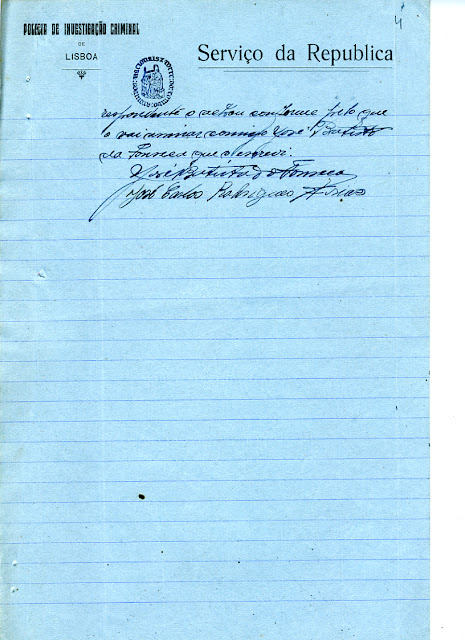 4
POLICIA DE INVESTIGAÇÃO CRIMINAL
DE
LISBOA
Serviço da Republica
respondente o achou conforme pelo que
o vai assinar comigo José Batista
da Fonseca que o escrevi.
José Batista da Fonseca
José Carlos Rodrigues